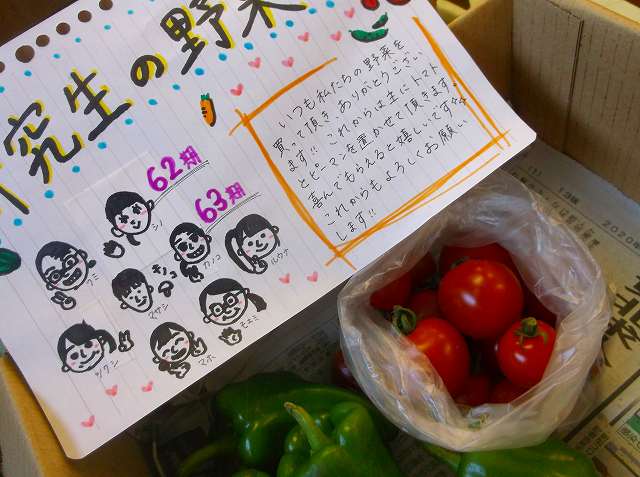 研究生の野菜
いつも私たちの野菜を
買って頂きありがとうござい
ます!! これからは主にトマト
とピーマンを置かせて頂きます。
喜んでもらえると嬉しいです☆
これからもよろしくお願い
します!!
62期
63期
クミ
マサシ
カノコ
ルウナ
ツクシ
マホ
モモミ
2020